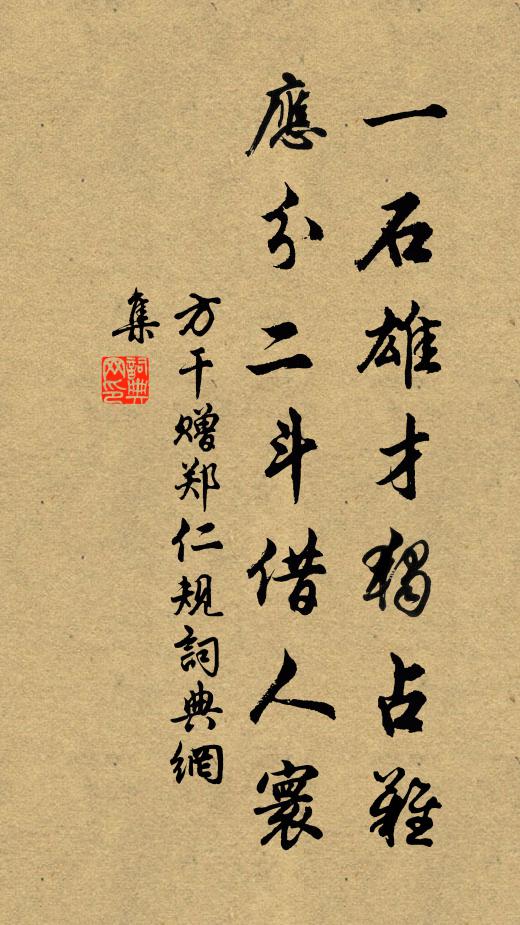 一石雄才獨占難
應分二斗借人寰
方干赠郑仁规詞典網
集
詞典網印